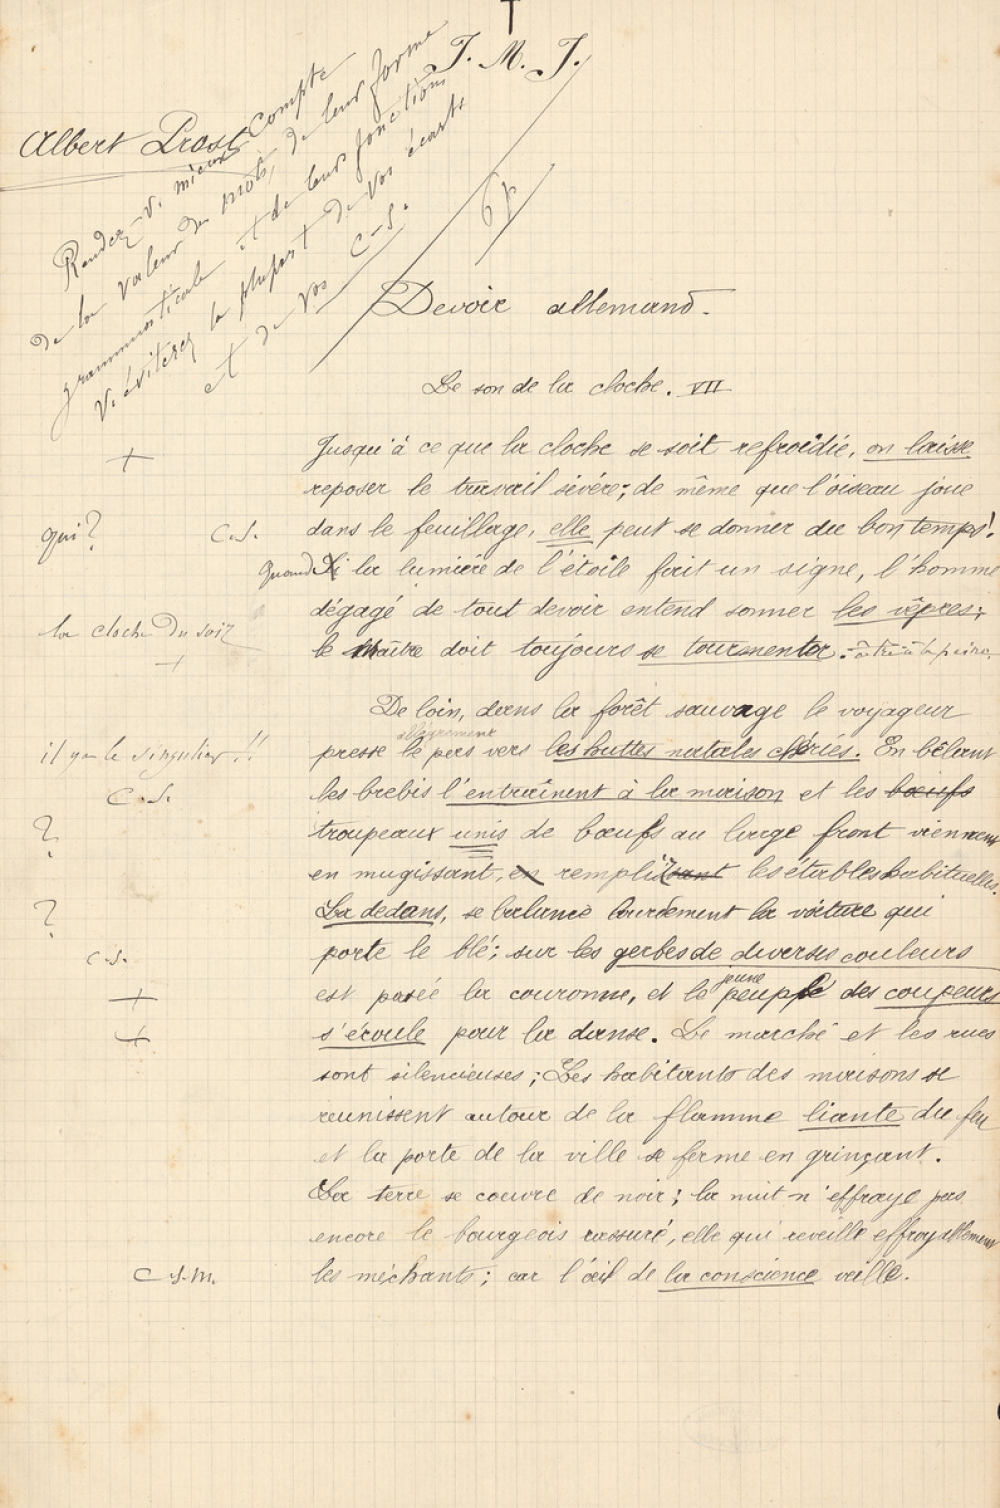 J. M. J.
Albert Prost
Rendez-v. mieux compte
de la valeur des mots, de leur forme
grammaticale et de leur fonction
v. éviterez la plupart de vos écarts
et de vos C-S.
Devoir allemand.
Le son de la cloche. VII
+
Jusqu'à ce que la cloche se soit refroidie, on laisse
reposer le travail sévère; de même que l'oiseau joue
qui? C.S.
dans le feuillage, elle peut se donner du bon temps!
Quand Si la lumière de l'étoile fait un signe, l'homme
dégagé de tout devoir entend sonner les vêpres;
la cloche du soir
+
le Maître doit toujours se tourmenter.
De loin, dans la forêt sauvage le voyageur
allègrement
il y a le singulier!!
presse le pas vers les huttes natales chéries. En bêlant
C.S.
les brebis l'entraînent à la maison et les boeufs
?
troupeaux unis de boeufs au large front viennent
en mugissant, en remplissant les étables habituelles.
?
La dedans, se balance lourdement la voiture qui
C.S.
porte le blé; sur les gerbes de diverses couleurs
+
est posée la couronne, et le jeune peuple des coupeurs
+
s'écoule pour la danse. Le marché et les rues
sont silencieuses; Les habitants des maisons se
reunissent autour de la flamme liante du feu
et la porte de la ville se ferme en grinçant.
La terre se coeuvre de noir; la nuit n'effraye pas
encore le bourgeois rassuré, elle qui reveille effroyablement
C.S.M.
les méchants; car l'œil de la conscience veille.